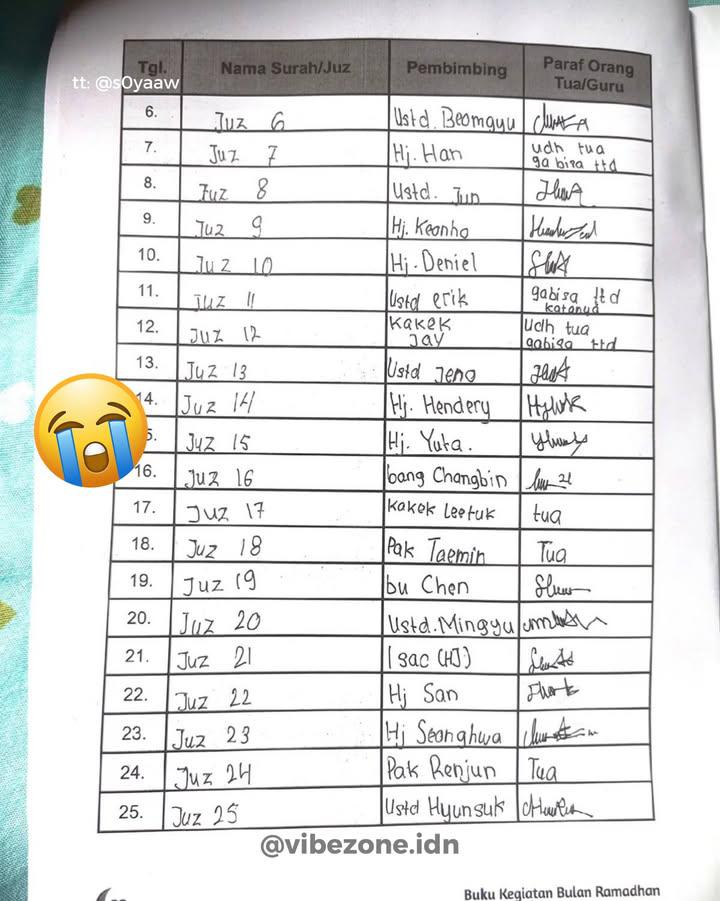 Tgl. Nama Surah/Juz Pembimbing Paraf Orang Tua/Guru
tt: @s0yaaw
6. Juz 6 Ustd. Beomgyu
7. Juz 7 Hj. Han udh tua ga bisa ttd
8. Juz 8 Ustd. Jun
9. Juz 9 Hj. Keonho
10. Juz 10 Hj. Deniel
11. Juz 11 Ustd erik gabisa ttd katanya
12. Juz 12 Kakek Jay Udh tua gabisa ttd
13. Juz 13 Ustd Jeno
14. Juz 14 Hj. Hendery
5. Juz 15 Hj. Yuta.
16. Juz 16 bang Changbin
17. Juz 17 Kakek Leetuk tua
18. Juz 18 Pak Taemin Tua
19. Juz 19 bu Chen
20. Juz 20 Ustd. Mingyu
21. Juz 21 Isac (HJ)
22. Juz 22 Hj San
23. Juz 23 Hj Seonghwa
24. Juz 24 Pak Renjun Tua
25. Juz 25 Ustd Hyunsuk
@vibezone.idn
Buku Kegiatan Bulan Ramadhan